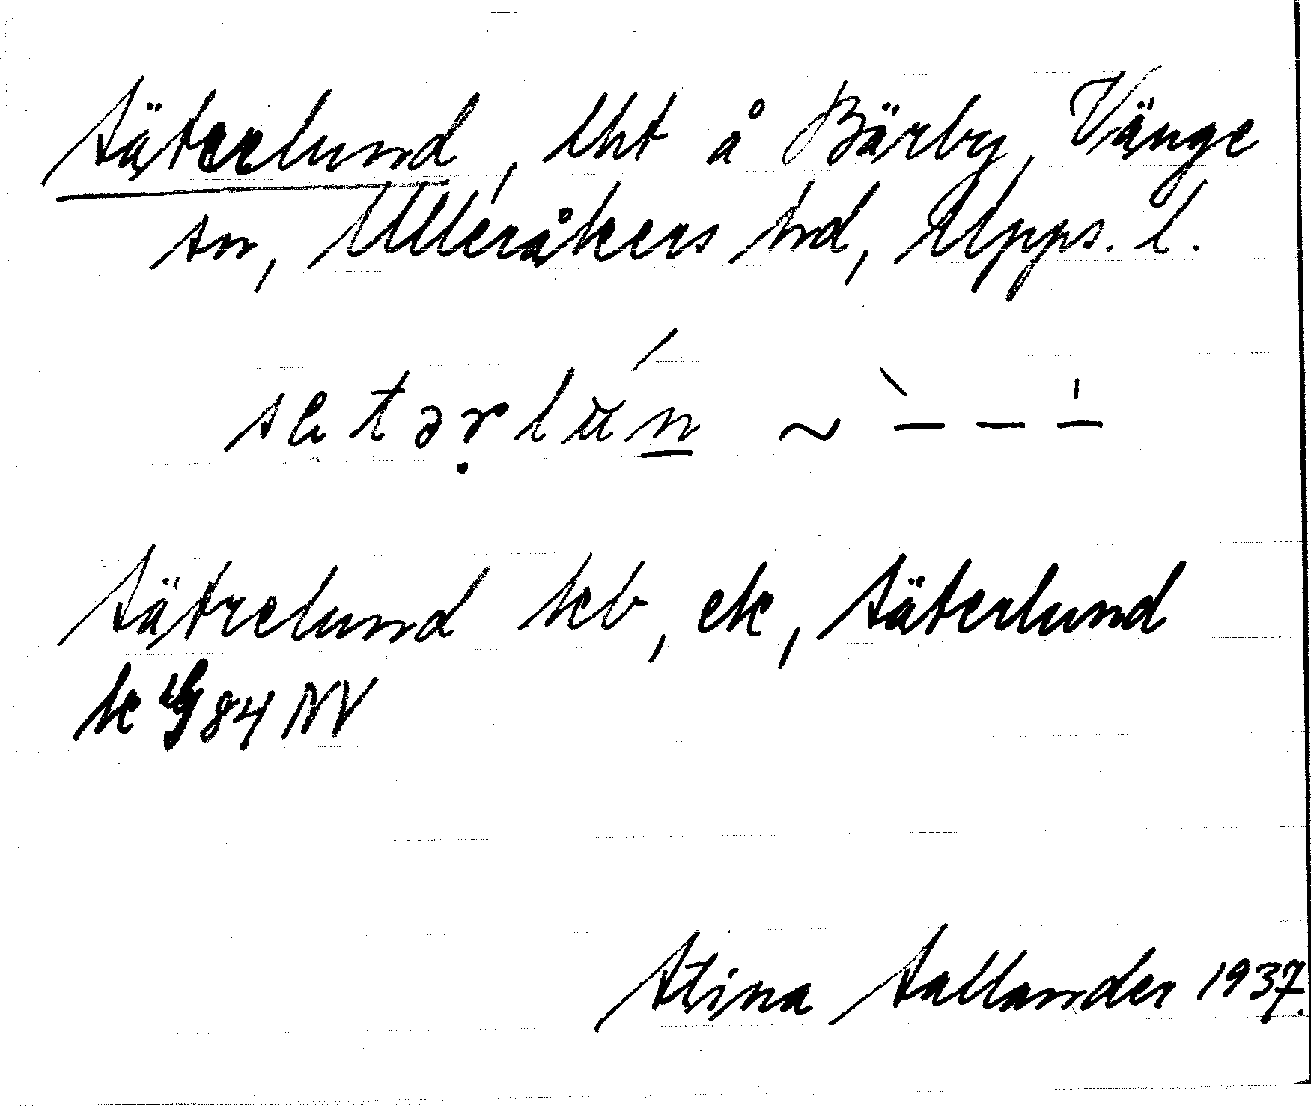 Säterlund, lht å Bärby, Vänge
sn, Ulleråkers hd, Upps. l.
sätərlún ~ `– – '–
Sätrelund kb, ek, Säterlund
k G 84 NV
Stina Sallander 1937.